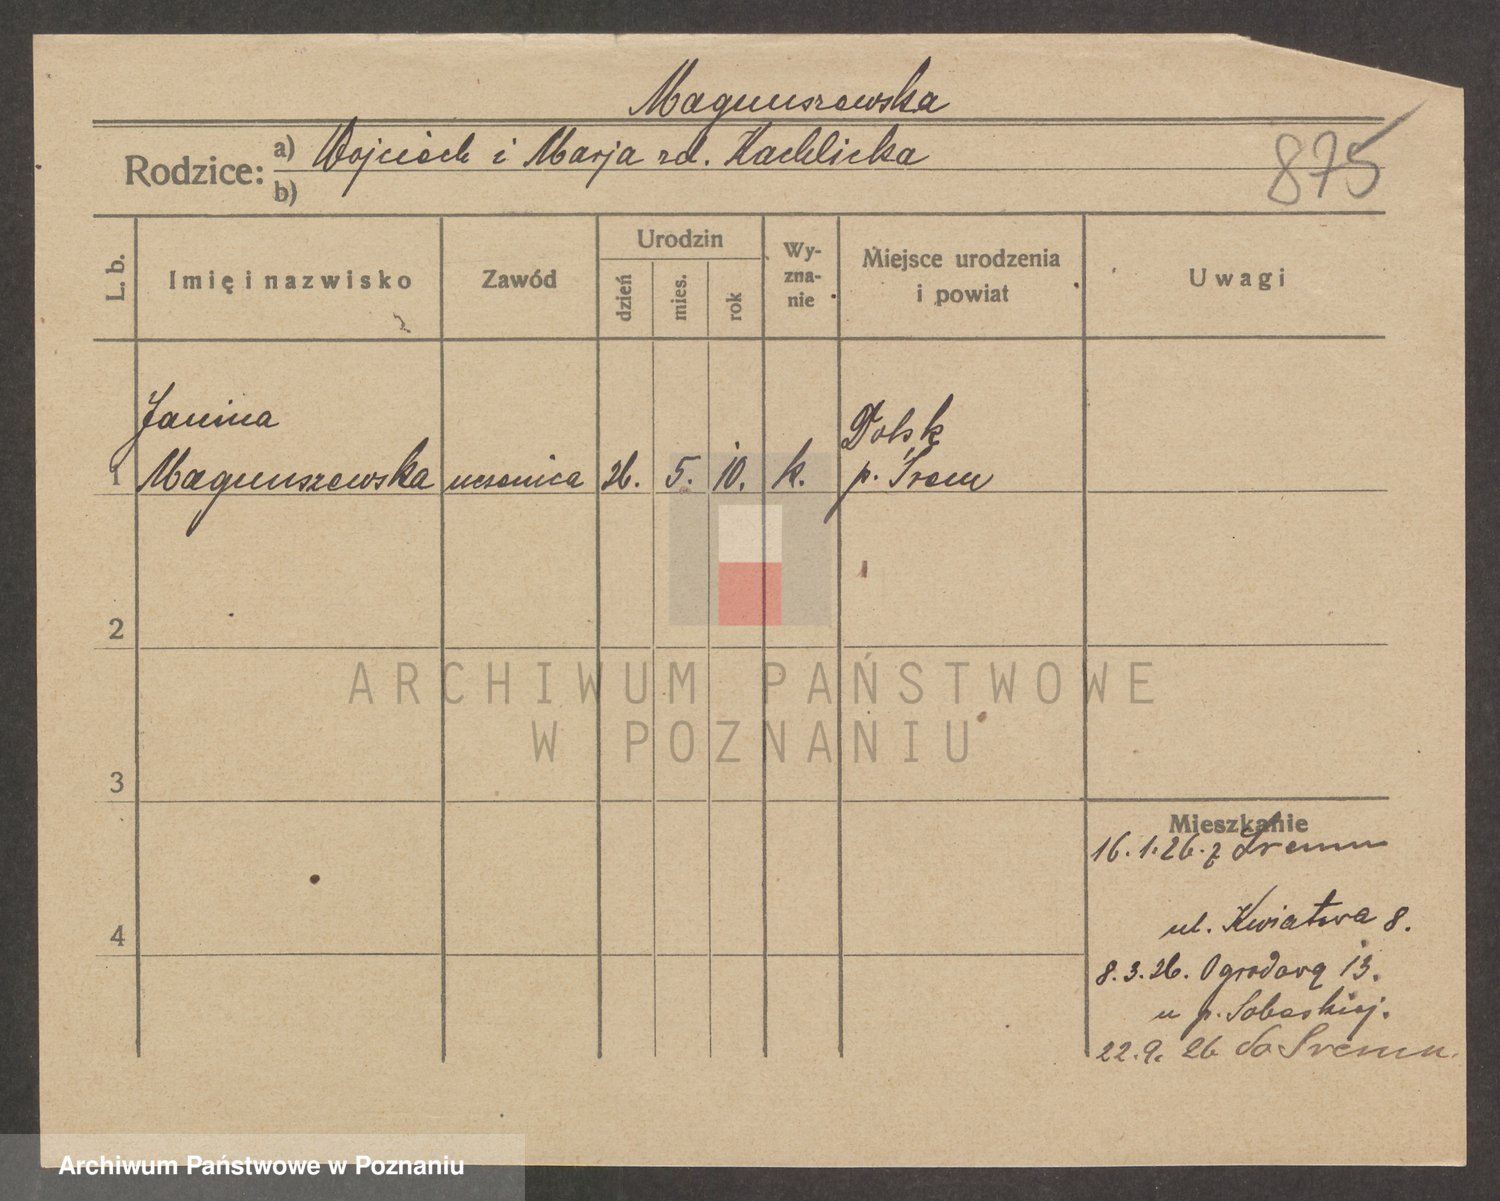 Magnuszewska
Rodzice: a) Wojciech i Marja zd. Kachlicka
b)
875
L. b.
Imię i nazwisko
Zawód
Urodzin
dzień
mies.
rok
Wy-
zna-
nie
Miejsce urodzenia
i powiat
Uwagi
1
Janina
Magnuszewska
uczenica
26.
5.
10.
k.
Dolsk
p. Śrem
2
3
4
Mieszkanie
16.1.26. z Śremu
ul. Kwiatowa 8.
8.3.26. Ogrodową 13.
u p. Sobeskiej.
22.9.26 do Śremu.
ARCHIWUM PAŃSTWOWE
W POZNANIU
Archiwum Państwowe w Poznaniu